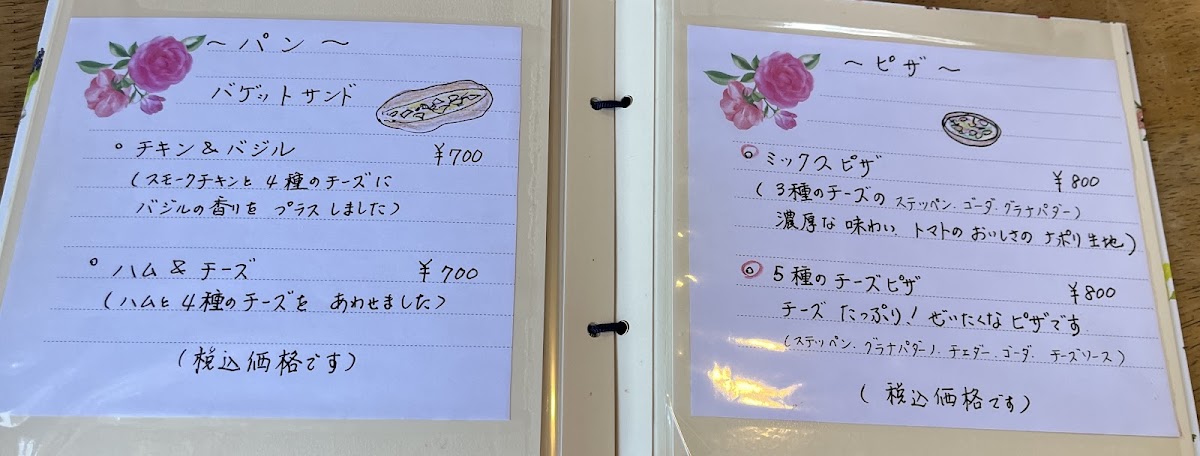 ～パン～
バゲットサンド
○ チキン&バジル ¥700
(スモークチキンと4種のチーズに
バジルの香りをプラスしました)
○ ハム&チーズ ¥700
(ハムと4種のチーズを あわせました)
(税込価格です)
～ピザ～
○ ミックスピザ ¥800
(3種のチーズの ステッペン.ゴーダ.グラナパダー)
濃厚な味わい トマトのおいしさのナポリ生地)
○ 5種のチーズピザ ¥800
チーズたっぷり!ぜいたくなピザです
(ステッペン.グラナパダーノ.チェダー.ゴーダ. チーズソース)
(税込価格です)